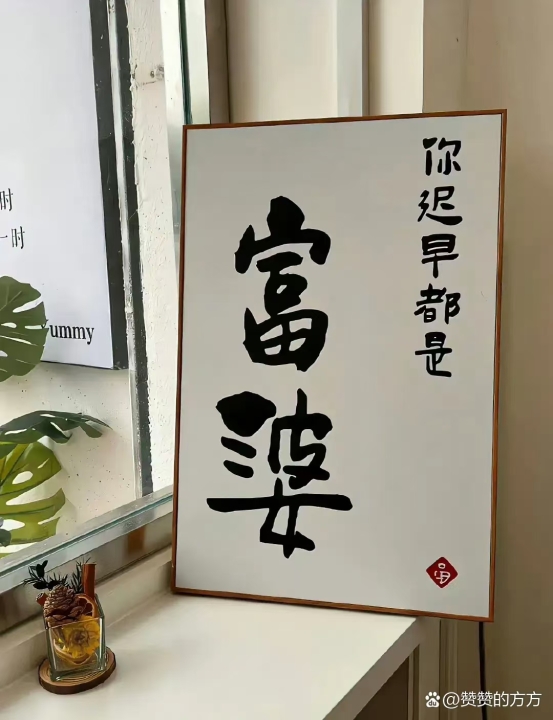 你迟早都是
富婆
时
一时
ummy
@赞赞的方方